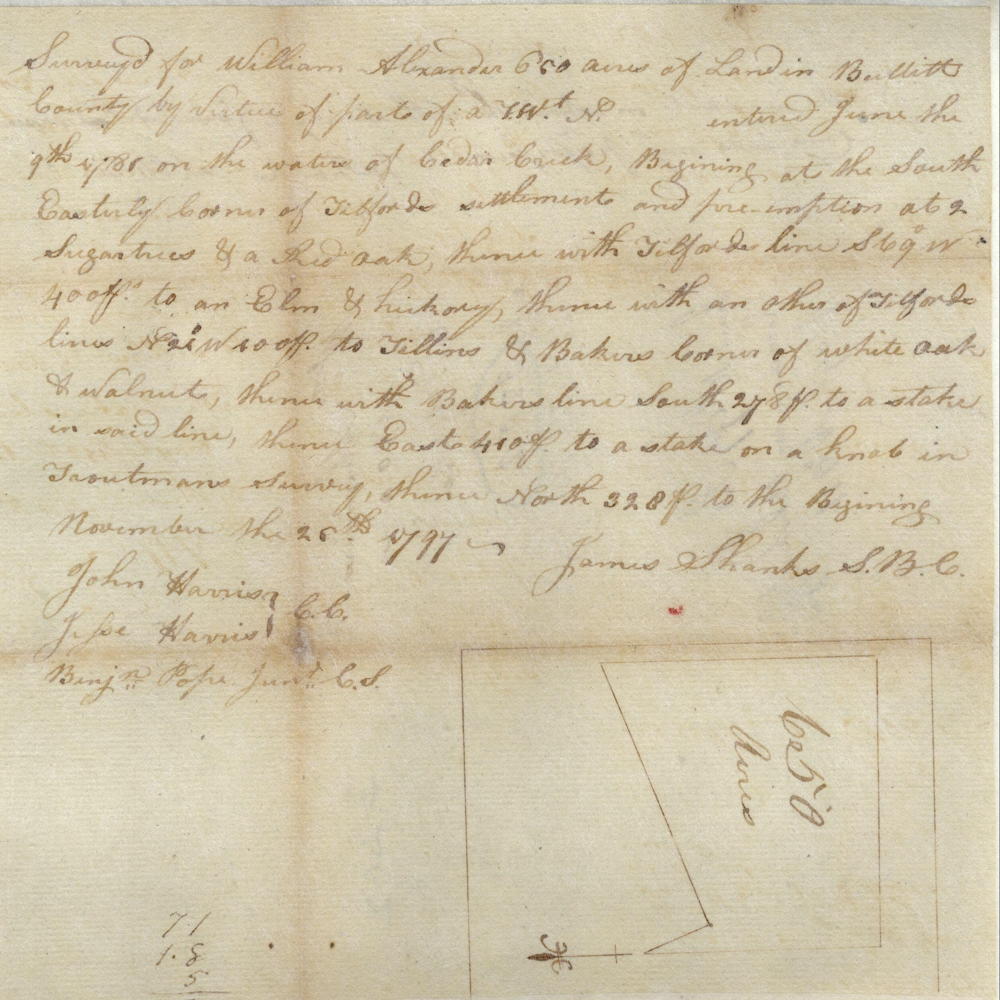 Survey'd for William Alexander 650 acres of Land in Bullitt
County by Virtue of part of a T.W.t N.o entered June the
9th 1781 on the waters of Cedar Creek, Begining at the South
Easterly Corner of Tilfords settlement and pre-emption at 2
Sugartrees & a Red oak, thence with Tilfords line S69° W
400 ps. to an Elm & hickory, thence with an other of Tilfords
lines N21° W 100 p. to Tillins & Bakers Corner of white oak
& walnut, thence with Bakers line South 278 p. to a stake
in said line, thence East 410 p. to a stake on a knob in
Troutmans survey, thence North 328 p. to the Begining
November the 26th 1797
James Shanks S.B.C.
John Harris
Jesse Harris } C.C.
Benj.n Pope Jun.r C.S.
650
Acres
7.1
1.8
5